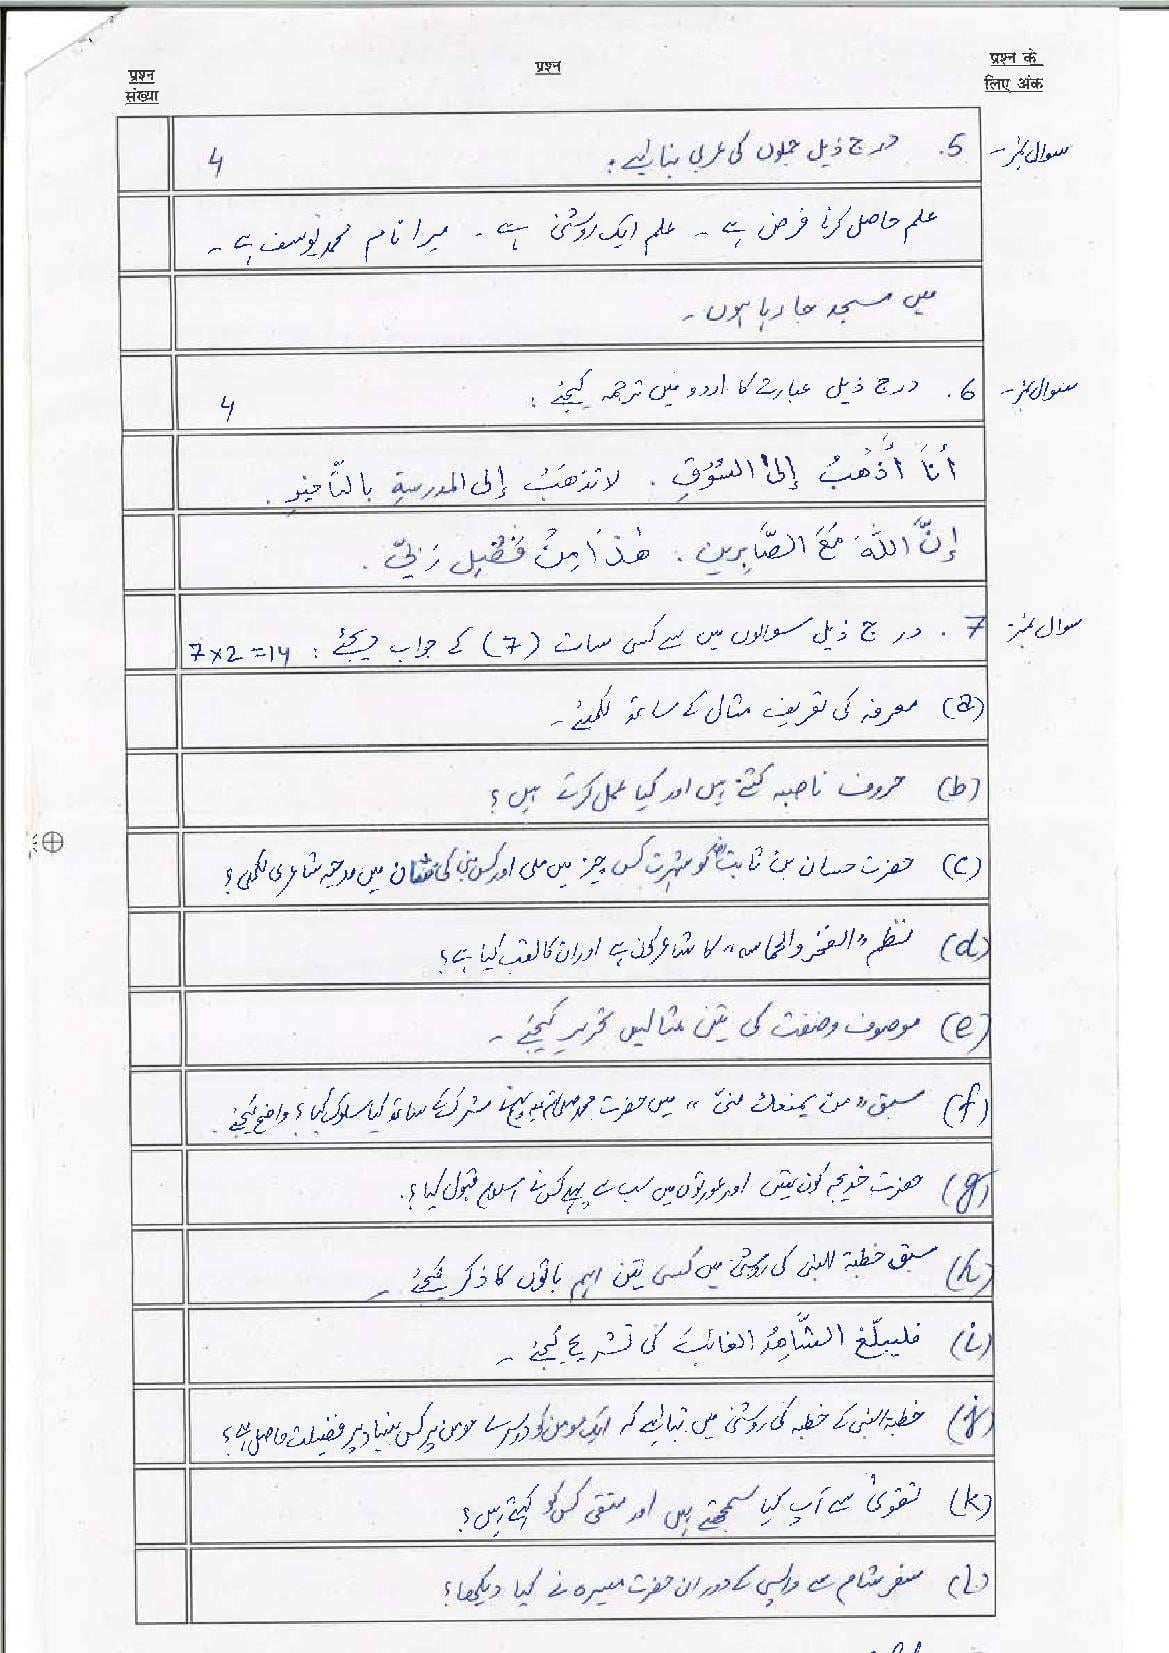 प्रश्न संख्या
प्रश्न
प्रश्न के लिए अंक
سوال نمبر- 5. درج ذیل جملوں کی عربی بنائیے: 4
علم حاصل کرنا فرض ہے - علم ایک روشنی ہے - میرا نام محمد یوسف ہے -
میں مسجد جا رہا ہوں -
سوال نمبر- 6. درج ذیل عبارت کا اردو میں ترجمہ کیجئے : 4
أَنَا أَذْهَبُ إِلَى السُّوْقِ . لا تذهَبْ إلى المدرسةِ بالتَّأخيرِ .
إِنَّ اللَّهَ مَعَ الصَّابِرِين . هٰذَا مِنْ فَضْلِ رَبِّيْ .
سوال نمبر- 7. درج ذیل سوالوں میں سے کسی سات (7) کے جواب دیجئے : 7x2=14
(a) معرفہ کی تعریف مثال کے ساتھ لکھئے -
(b) حروف ناصبہ کتنے ہیں اور کیا عمل کرتے ہیں ؟
(c) حضرت حسان بن ثابتؓ کو شہرت کس چیز میں ملی اور کس نبی کی شان میں مدحیہ شاعری لکھی ؟
(d) نظم "الفخر والحماسہ" کا شاعر کون ہے اور ان کا لقب کیا ہے ؟
(e) موصوف وصفت کی تین مثالیں تحریر کیجئے -
(f) سبق "من یمنعك منّی" میں حضرت محمد صلی اللہ علیہ وسلم نے مشرک کے ساتھ کیا سلوک کیا ؟ واضح کیجئے .
(g) حضرت خدیجہ کون تھیں اور عورتوں میں سب سے پہلے کس نے اسلام قبول کیا ؟.
(h) سبق خطبۃ النبی کی روشنی میں کسی تین اہم باتوں کا ذکر کیجئے -
(i) فلیبلّغ الشَّاهِدُ الغائبَ کی تشریح کیجئے -
(j) خطبۃ النبی کے خطبہ کی روشنی میں بتائیے کہ ایک مومن کو دوسرے مومن پر کس بنیاد پر فضیلت حاصل ہے ؟
(k) تقویٰ سے آپ کیا سمجھتے ہیں اور متقی کس کو کہتے ہیں ؟
(l) سفر شام سے واپسی کے دوران حضرت میسرہ نے کیا دیکھا ؟